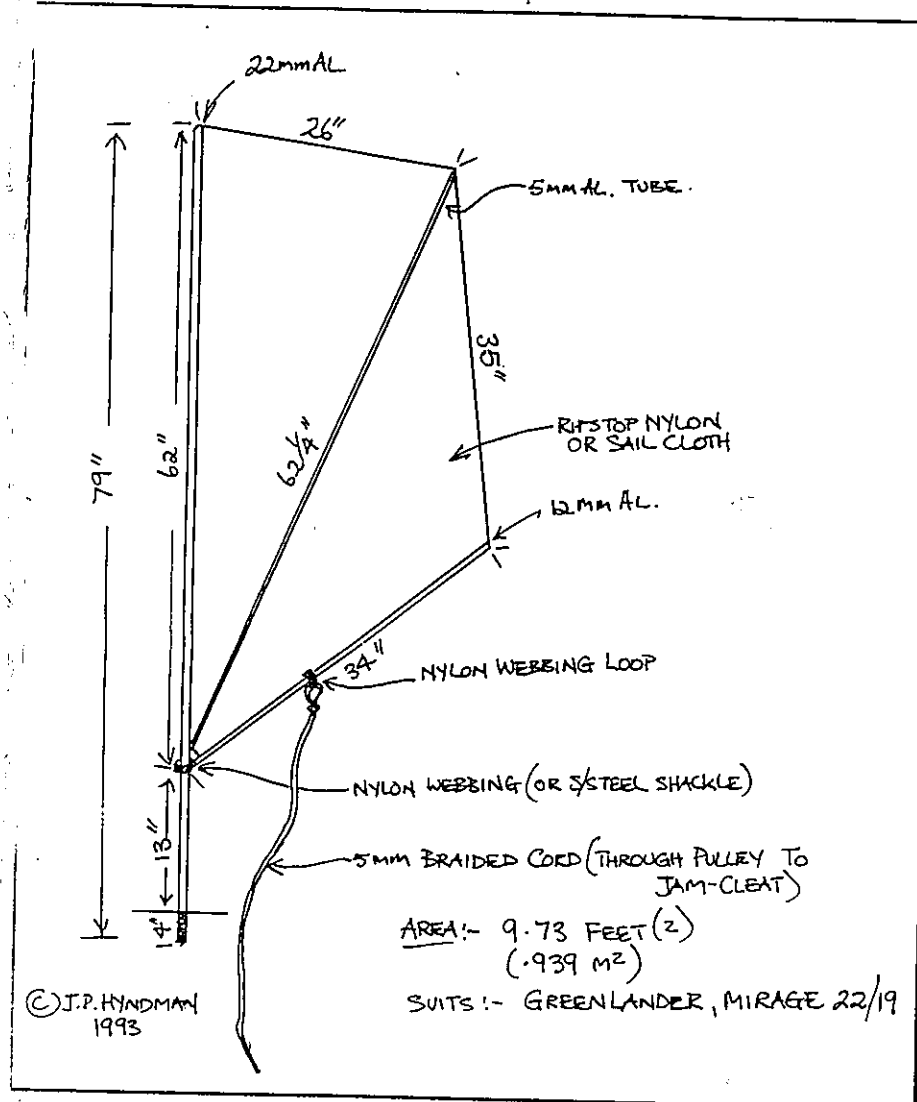 22mm AL
26"
5mm AL. TUBE.
35"
79"
62"
62 1/4"
RIPSTOP NYLON
OR SAIL CLOTH
12mm AL.
34"
NYLON WEBBING LOOP
NYLON WEBBING (OR S/STEEL SHACKLE)
13"
5mm BRAIDED CORD (THROUGH PULLEY TO
JAM-CLEAT)
14"
AREA:- 9.73 FEET (2)
(.939 M²)
© J.P. HYNDMAN
1993
SUITS:- GREENLANDER, MIRAGE 22/19